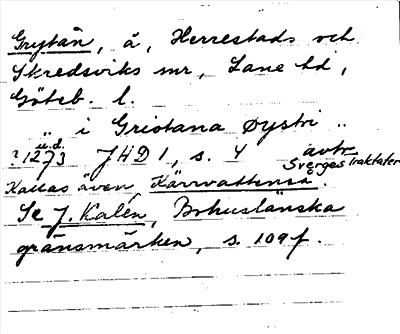 Grytån, å, Herrestads och
Skredsviks snr, Lane hd,
Göteb. l.
„ i Griotana Øystri „
? 1273 u.d. JHD 1, s. 4 avtr.
Sverges traktater
Kallas även Kärrvattenså.
Se J. Kalén, Bohuslänska
gränsmärken, s. 109 f.